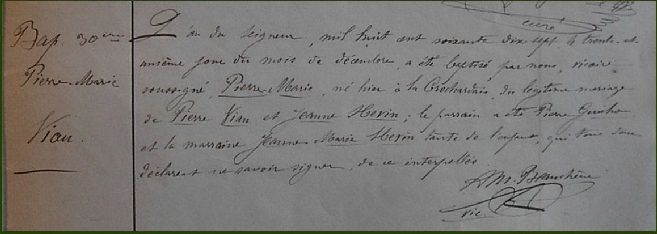 curé
Bap. 30ème
Pierre-Marie
Viau.
L'an du Seigneur, mil huit cent soixante dix sept le trente et
unième jour du mois de décembre a été baptisé par nous, vicaire
soussigné Pierre-Marie, né hier à la du légitime mariage
de Pierre Viau et Jeanne Hervin; le parrain a été Pierre
et la marraine Jeanne-Marie Hervin tante de l'enfant, qui tous deux
déclarent ne savoir signer de ce interpellés
vic.